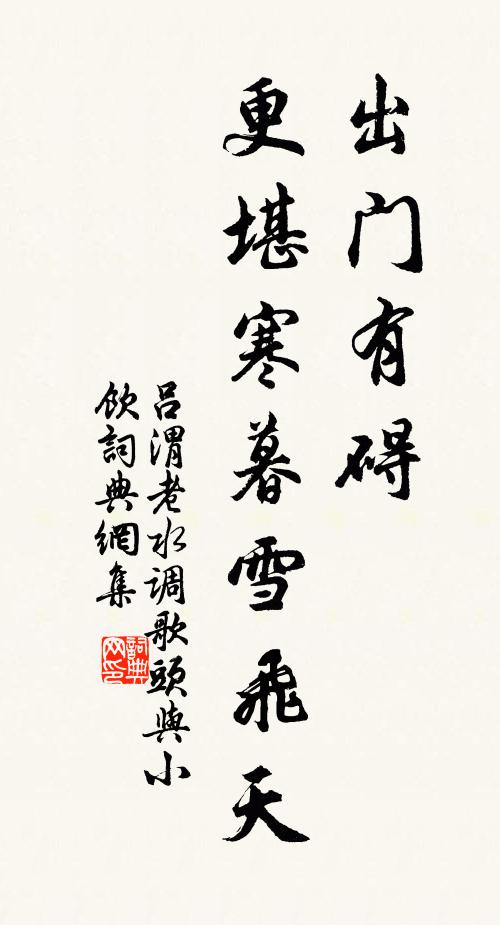 出门有碍
更堪寒暮雪飛天
吕渭老水调歌頭與小
飲詞典網集
詞典
网印